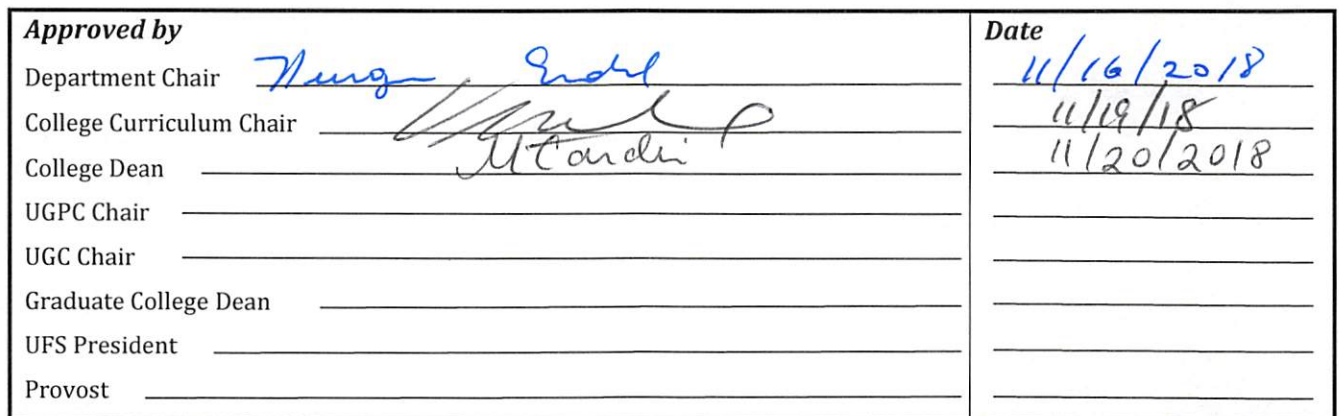 Approved by Date
Department Chair 11/16/2018
College Curriculum Chair 11/19/18
College Dean 11/20/2018
UGPC Chair
UGC Chair
Graduate College Dean
UFS President
Provost